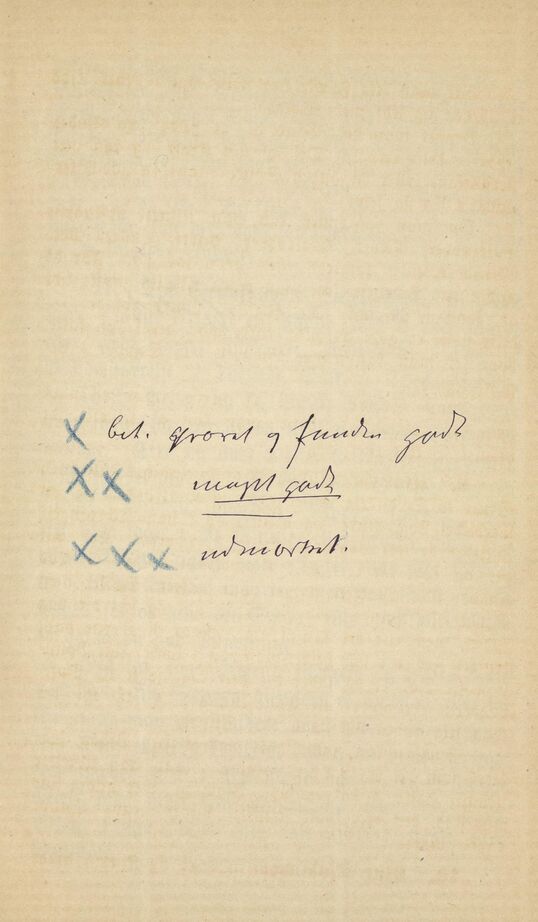 X bet. prøvet og funden godt
XX meget godt
XXX udmærket.